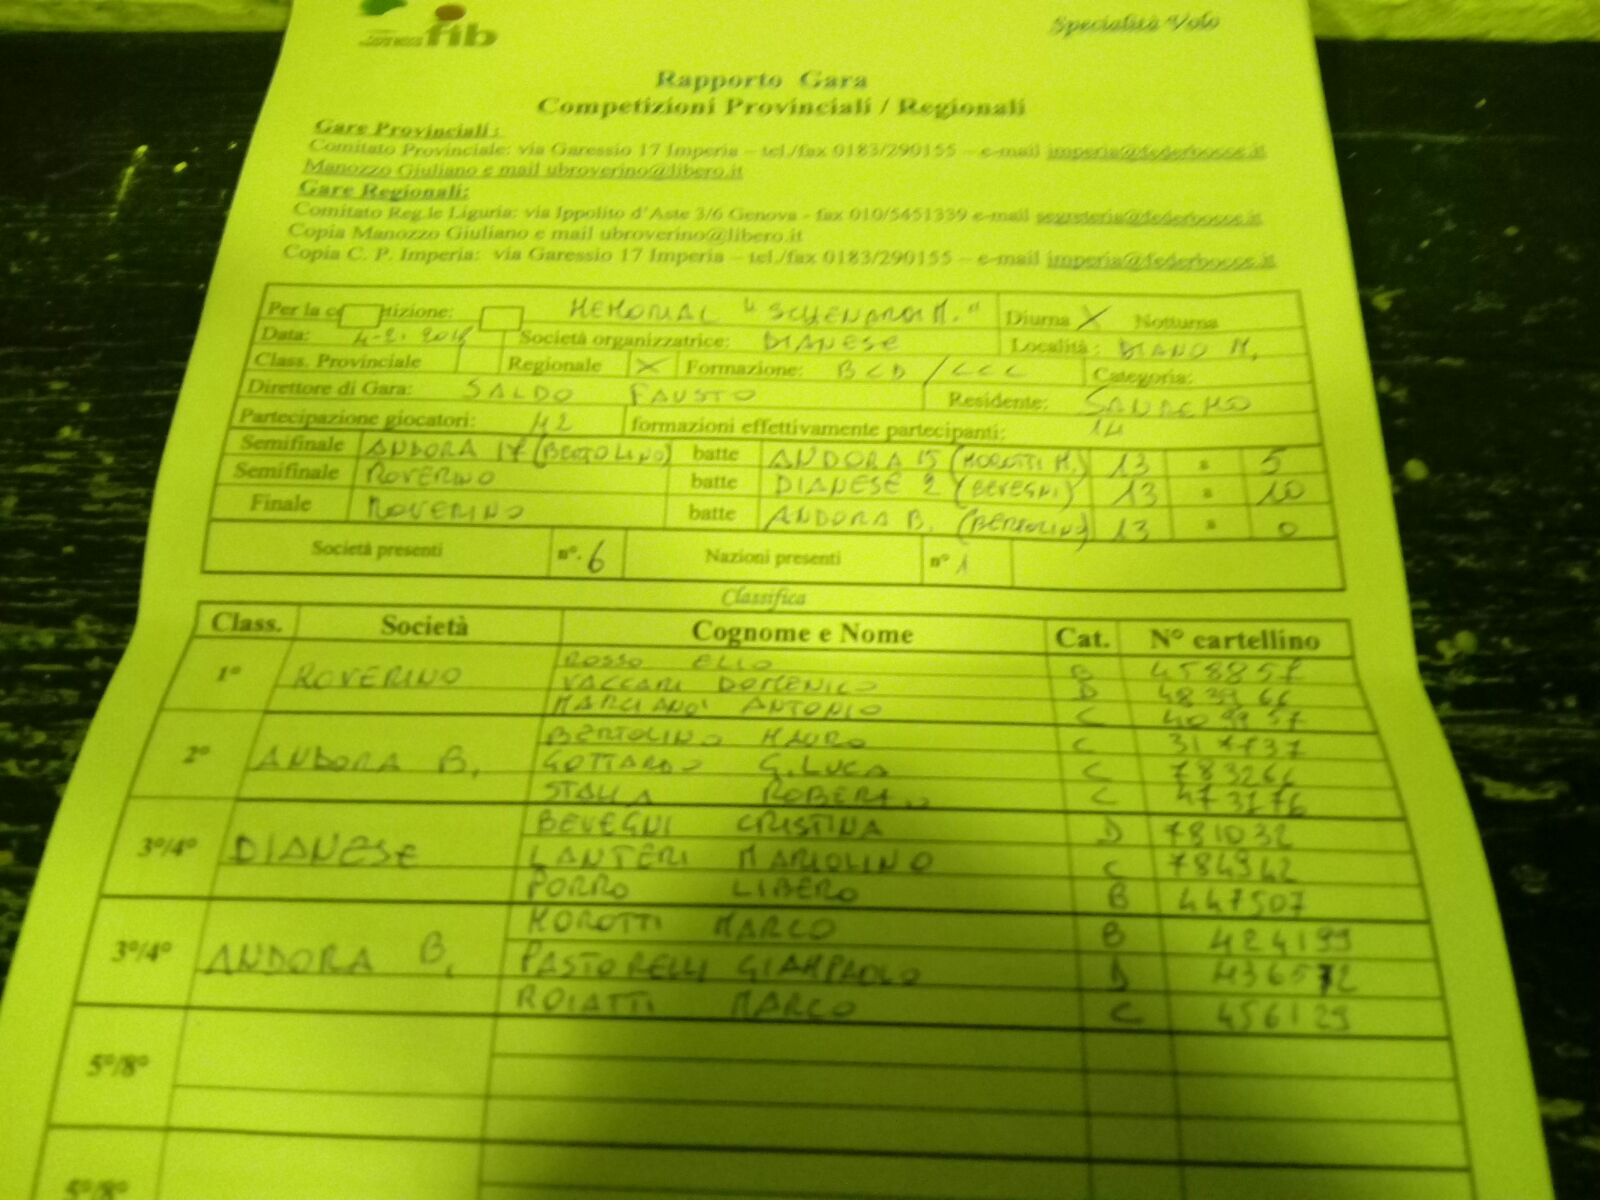 fib
Specialità Volo
Rapporto Gara
Competizioni Provinciali / Regionali
Gare Provinciali:
Comitato Provinciale: via Garessio 17 Imperia – tel./fax 0183/290155 – e-mail imperia@federbocce.it
Manozzo Giuliano e mail ubroverino@libero.it
Gare Regionali:
Comitato Reg.le Liguria: via Ippolito d'Aste 3/6 Genova - fax 010/5451339 e-mail segreteria@federbocce.it
Copia Manozzo Giuliano e mail ubroverino@libero.it
Copia C. P. Imperia: via Garessio 17 Imperia – tel./fax 0183/290155 – e-mail imperia@federbocce.it
Per la tizione: MEMORIAL "SCHENARDI M." Diurna X Notturna
Data: Società organizzatrice: DIANESE Località: DIANO M.
Class. Provinciale Regionale X Formazione: BCD / CCC Categoria:
Direttore di Gara: SALDO FAUSTO Residente: SANREMO
Partecipazione giocatori: 42 formazioni effettivamente partecipanti: 14
Semifinale ANDORA 17 (BERTOLINO) batte ANDORA 15 (MOROTTI M.) 13 a 5
Semifinale ROVERINO batte DIANESE 2 (BEVEGNI) 13 a 10
Finale ROVERINO batte ANDORA B. (BERTOLINO) 13 a 0
Società presenti n°. 6 Nazioni presenti n° 1
Classifica
Class. Società Cognome e Nome Cat. N° cartellino
1° ROVERINO ROSSO ELIO B 458857
VACCARI DOMENICO D 483966
MARCIANO' ANTONIO C 409957
2° ANDORA B. BERTOLINO MAURO C
GOTTARDO G.LUCA C 783266
STALLA ROBERTO C 473176
3°/4° DIANESE BEVEGNI CRISTINA D 781032
LANTERI MARIOLINO C 784942
PORRO LIBERO B 447507
3°/4° ANDORA B. MOROTTI MARCO B 424199
PASTORELLI GIAMPAOLO D 436572
ROIATTI MARCO C 456129
5°/8°
5°/8°